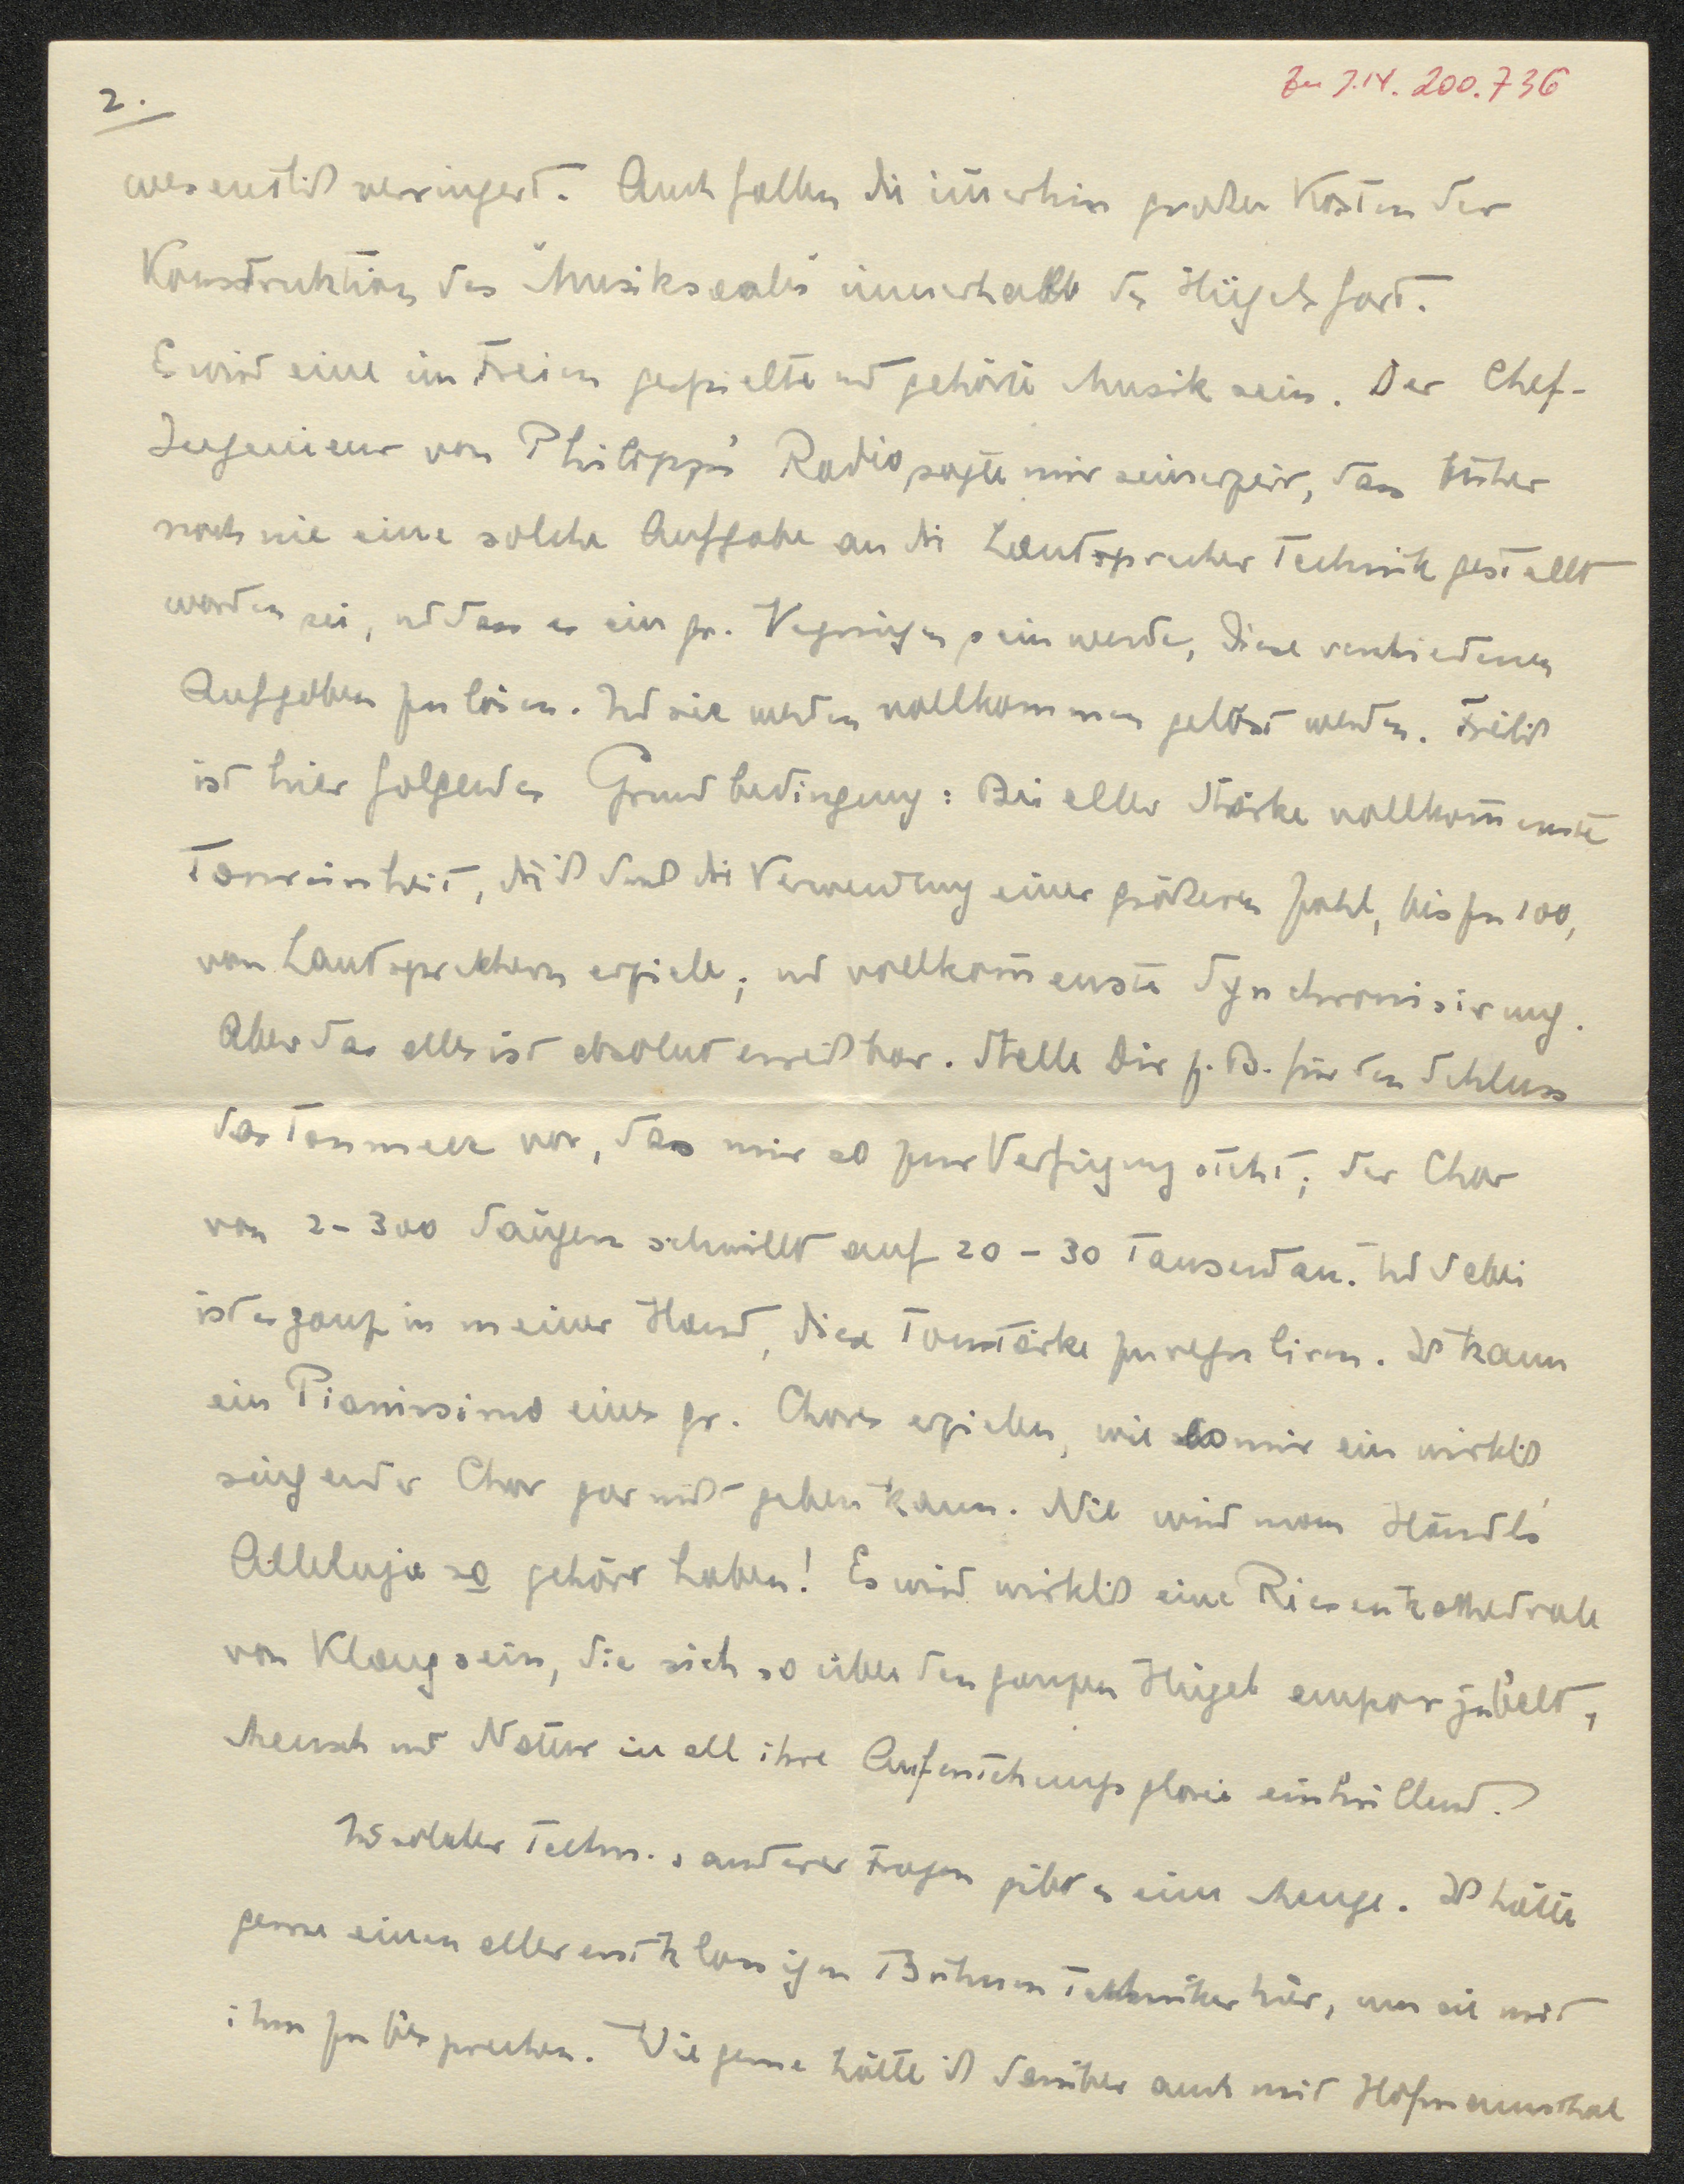 2.
Zu I.N. 200.736
wesentlich verringert. Auch fallen die im̅erhin großen Kosten der
Konstruktion des "Musiksaals" innerhalb des Hügels fort.
Es wird eine im Freien gespielte und gehörte Musik sein. Der Chef-
Ingenieur von Philipps' Radio sagte mir seinerzeit, dass bisher
noch nie eine solche Aufgabe an die Lautsprecher Technik gestellt
worden sei, und dass es ein gr. Vergnügen sein werde, diese verschiedenen
Aufgaben zu lösen. Und sie werden vollkommen gelöst werden. Freilich
ist hier folgendes Grundbedingung: Bei aller Stärke vollkom̅enste
Tonreinheit, die ich durch die Verwendung einer größeren Zahl, bis zu 100,
von Lautsprechern erziele; und vollkom̅enste Synchronisirung.
Aber das alles ist absolut erreichbar. Stelle Dir z.B. für den Schluss
das Tonmeer vor, das mir so zur Verfügung steht; der Chor
von 2-300 Sängern schwillt auf 20-30 Tausend an. Und dabei
ist es ganz in meiner Hand, diese Tonstärke zu reguliren. Ich kann
ein Pianissimo eines gr. Chores erzielen, wie es mir ein wirklich
singender Chor gar nicht geben kann. Nie wird man Händls'
Alleluja so gehört haben! Es wird wirklich eine Riesenkathedrale
von Klang sein, die sich so über den ganzen Hügel emporjubelt,
Mensch und Natur in all ihre Auferstehungsglorie einhüllend.
Und solcher techn. u. anderer Fragen gibt es eine Menge. Ich hätte
gerne einen allererstklassigen Bühnentechniker hier, um sie mit
ihm zu besprechen. Wie gerne hätte ich darüber auch mit Hofmannsthal